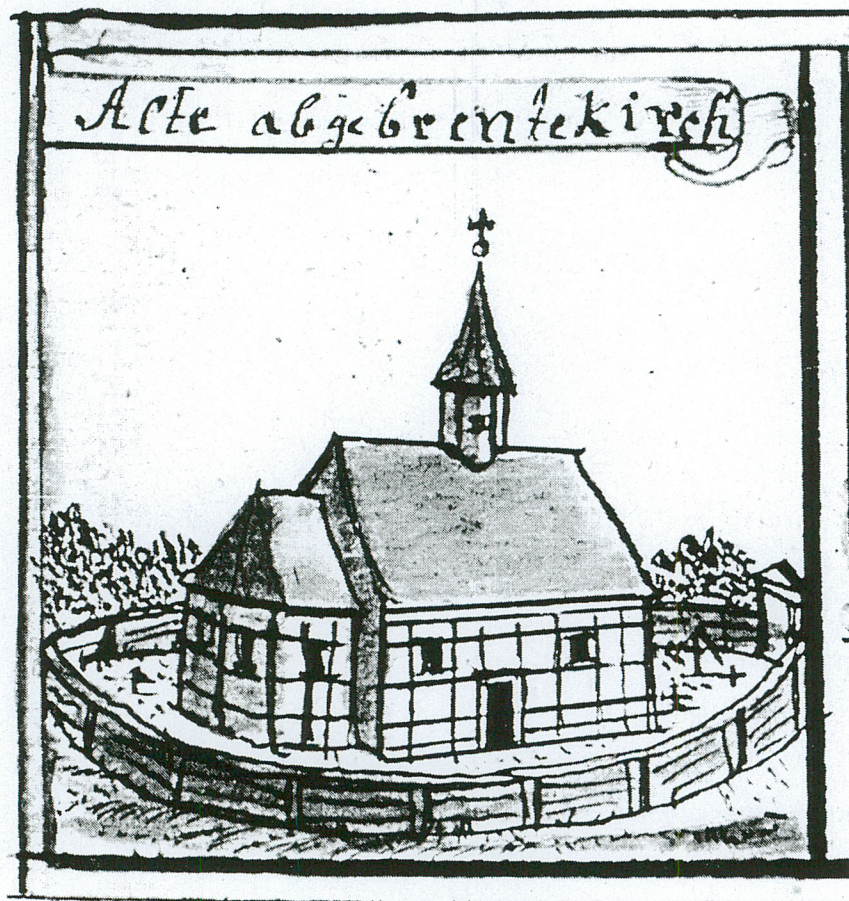 Alte abgebrentekirch